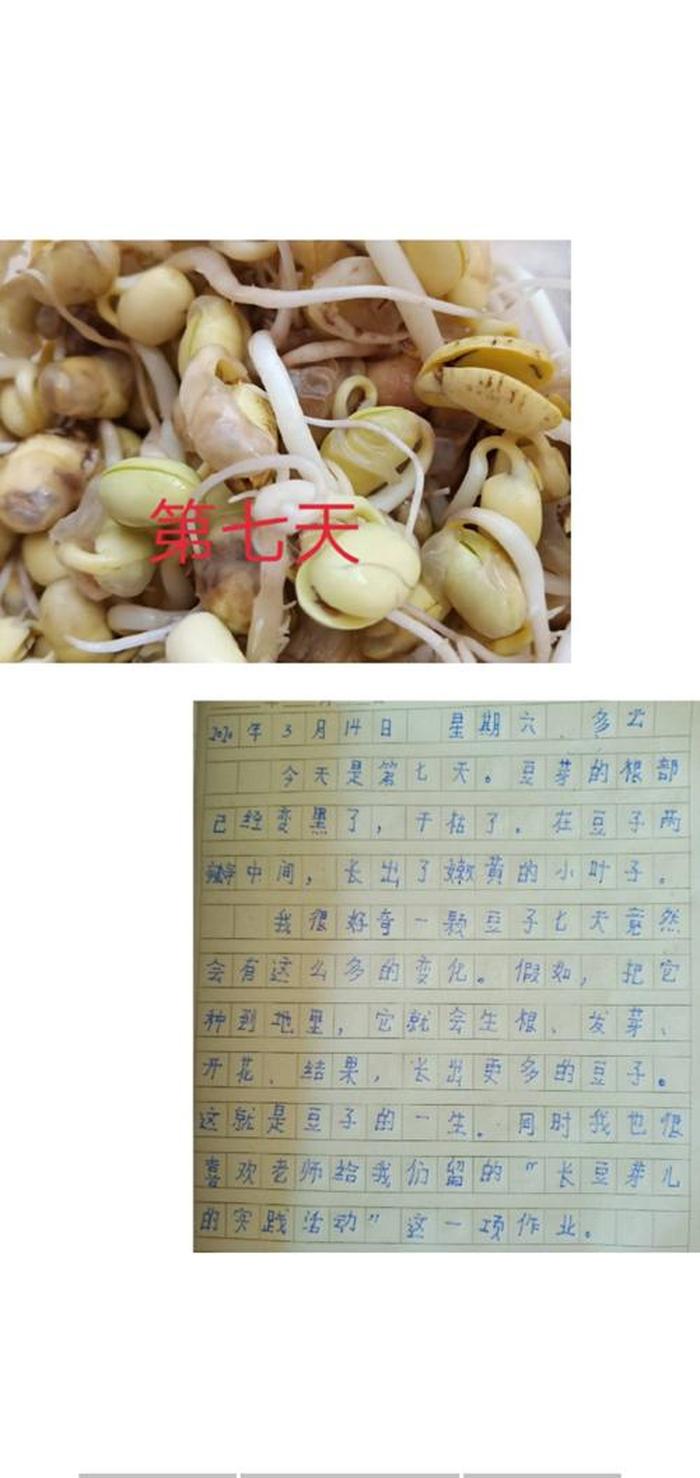 第七天
2020年3月14日 星期六 多云
今天是第七天。豆芽的根部
已经变黑了，干枯了。在豆子两
中间，长出了嫩黄的小叶子。
我很好奇一颗豆子七天竟然
会有这么多的变化。假如，把它
种到地里，它就会生根、发芽、
开花、结果，长出更多的豆子。
这就是豆子的一生。同时我也很
喜欢老师给我们留的“长豆芽儿
的实践活动”这一项作业。